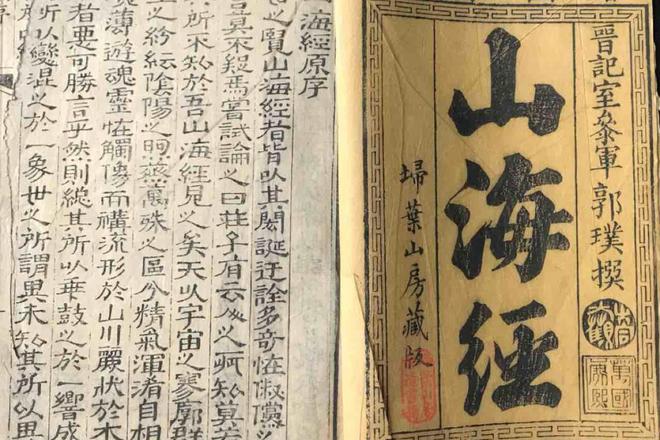 晉記室叅軍郭璞撰
山海經
埽葉山房藏版
海經原序
之覽山海經者皆以其閎誕迂誇多奇恠俶儻之
言莫不疑焉嘗試論之曰莊子有云人之所知莫若
其所不知於吾山海經見之矣夫以宇宙之寥廓群
生之紛紜陰陽之煦蒸萬殊之區分精氣渾淆自相
薄遊魂靈恠觸像而構流形於山川麗狀於木
者惡可勝言乎然則總其所以乖鼓之於一響成
所以變混之於一象世之所謂異未知其所以異